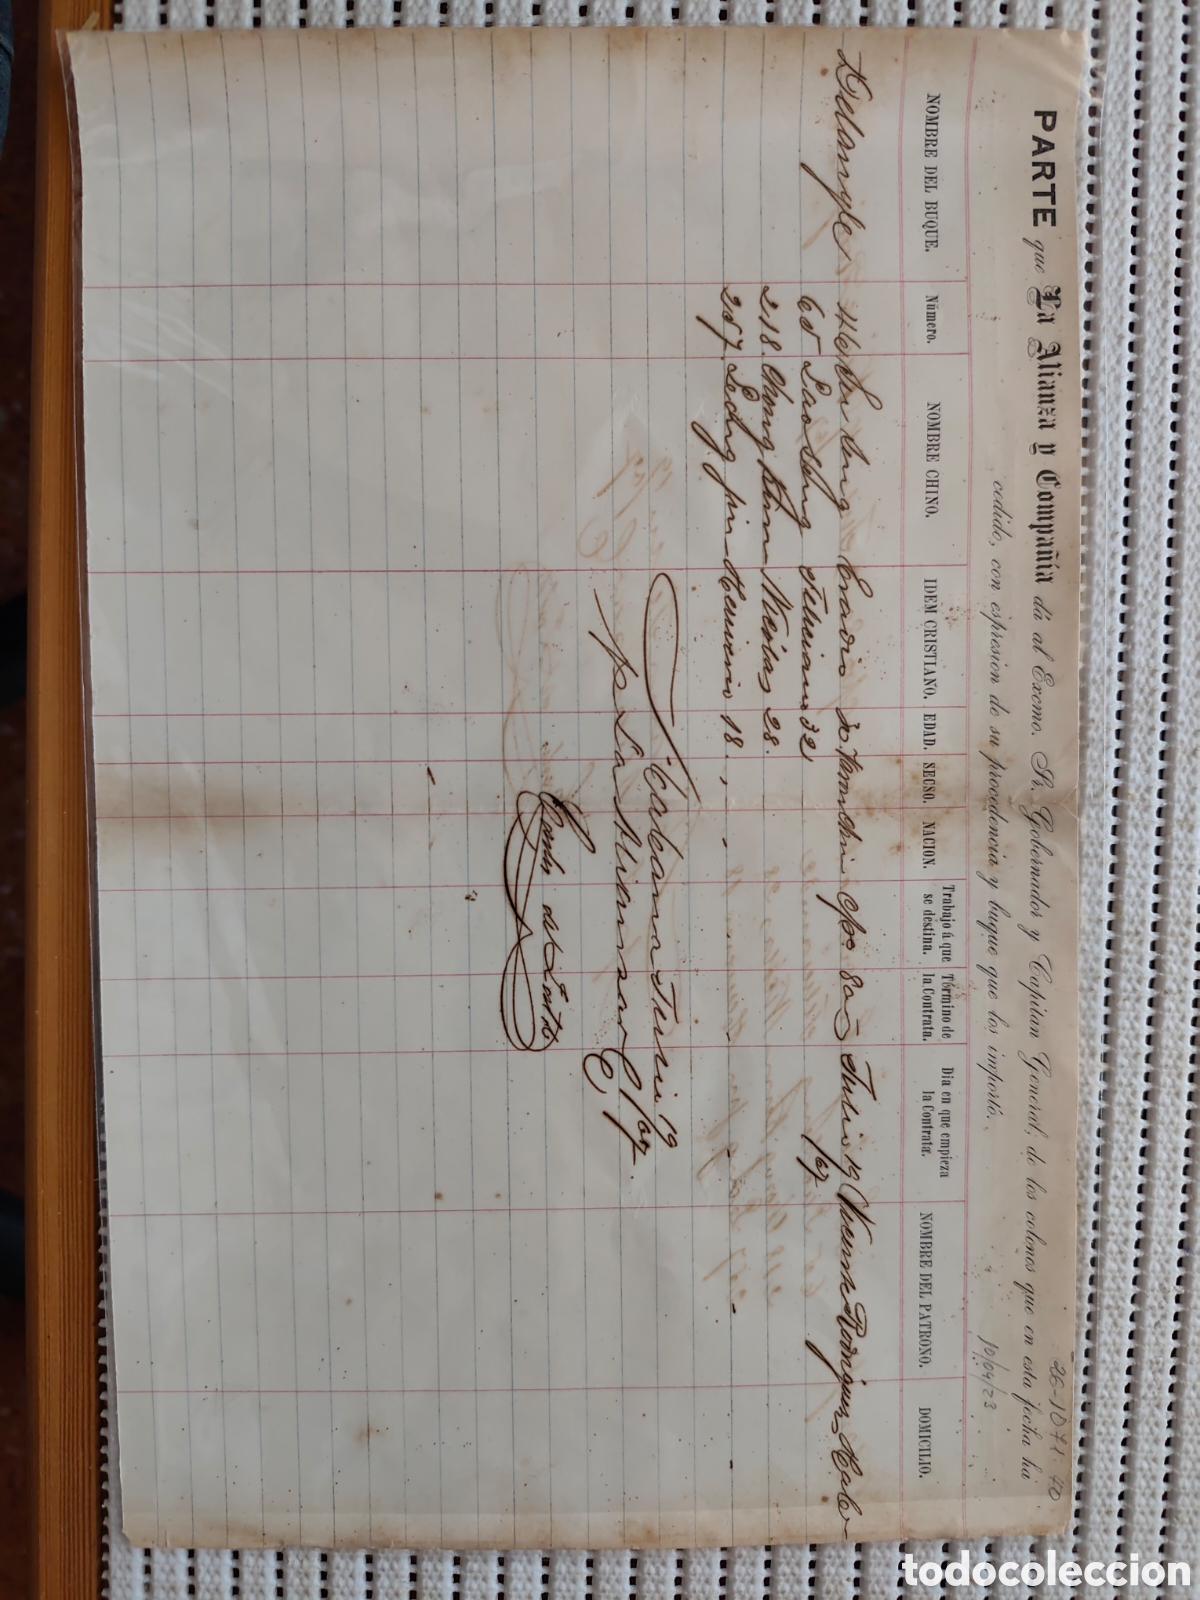 26-1071-40
PARTE que La Alianza y Compañia dá al Excmo. Sr. Gobernador y Capitan General, de los colonos que en esta fecha ha
cedido, con espresion de su procedencia y buque que los importó.
10/04/23
NOMBRE DEL BUQUE. Número. NOMBRE CHINO. IDEM CRISTIANO. EDAD. SECSO. NACION. Trabajo á que se destina. Término de la Contrata. Dia en que empieza la Contrata. NOMBRE DEL PATRONO. DOMICILIO.
Eradio 20 8 Julio 19 Vicente Rodriguez
65 Feliciano 32 /67
218. Chong Nicolas 28.
287 18.
Habana Julio 19/67
p La Alianza y Ca
todocoleccion